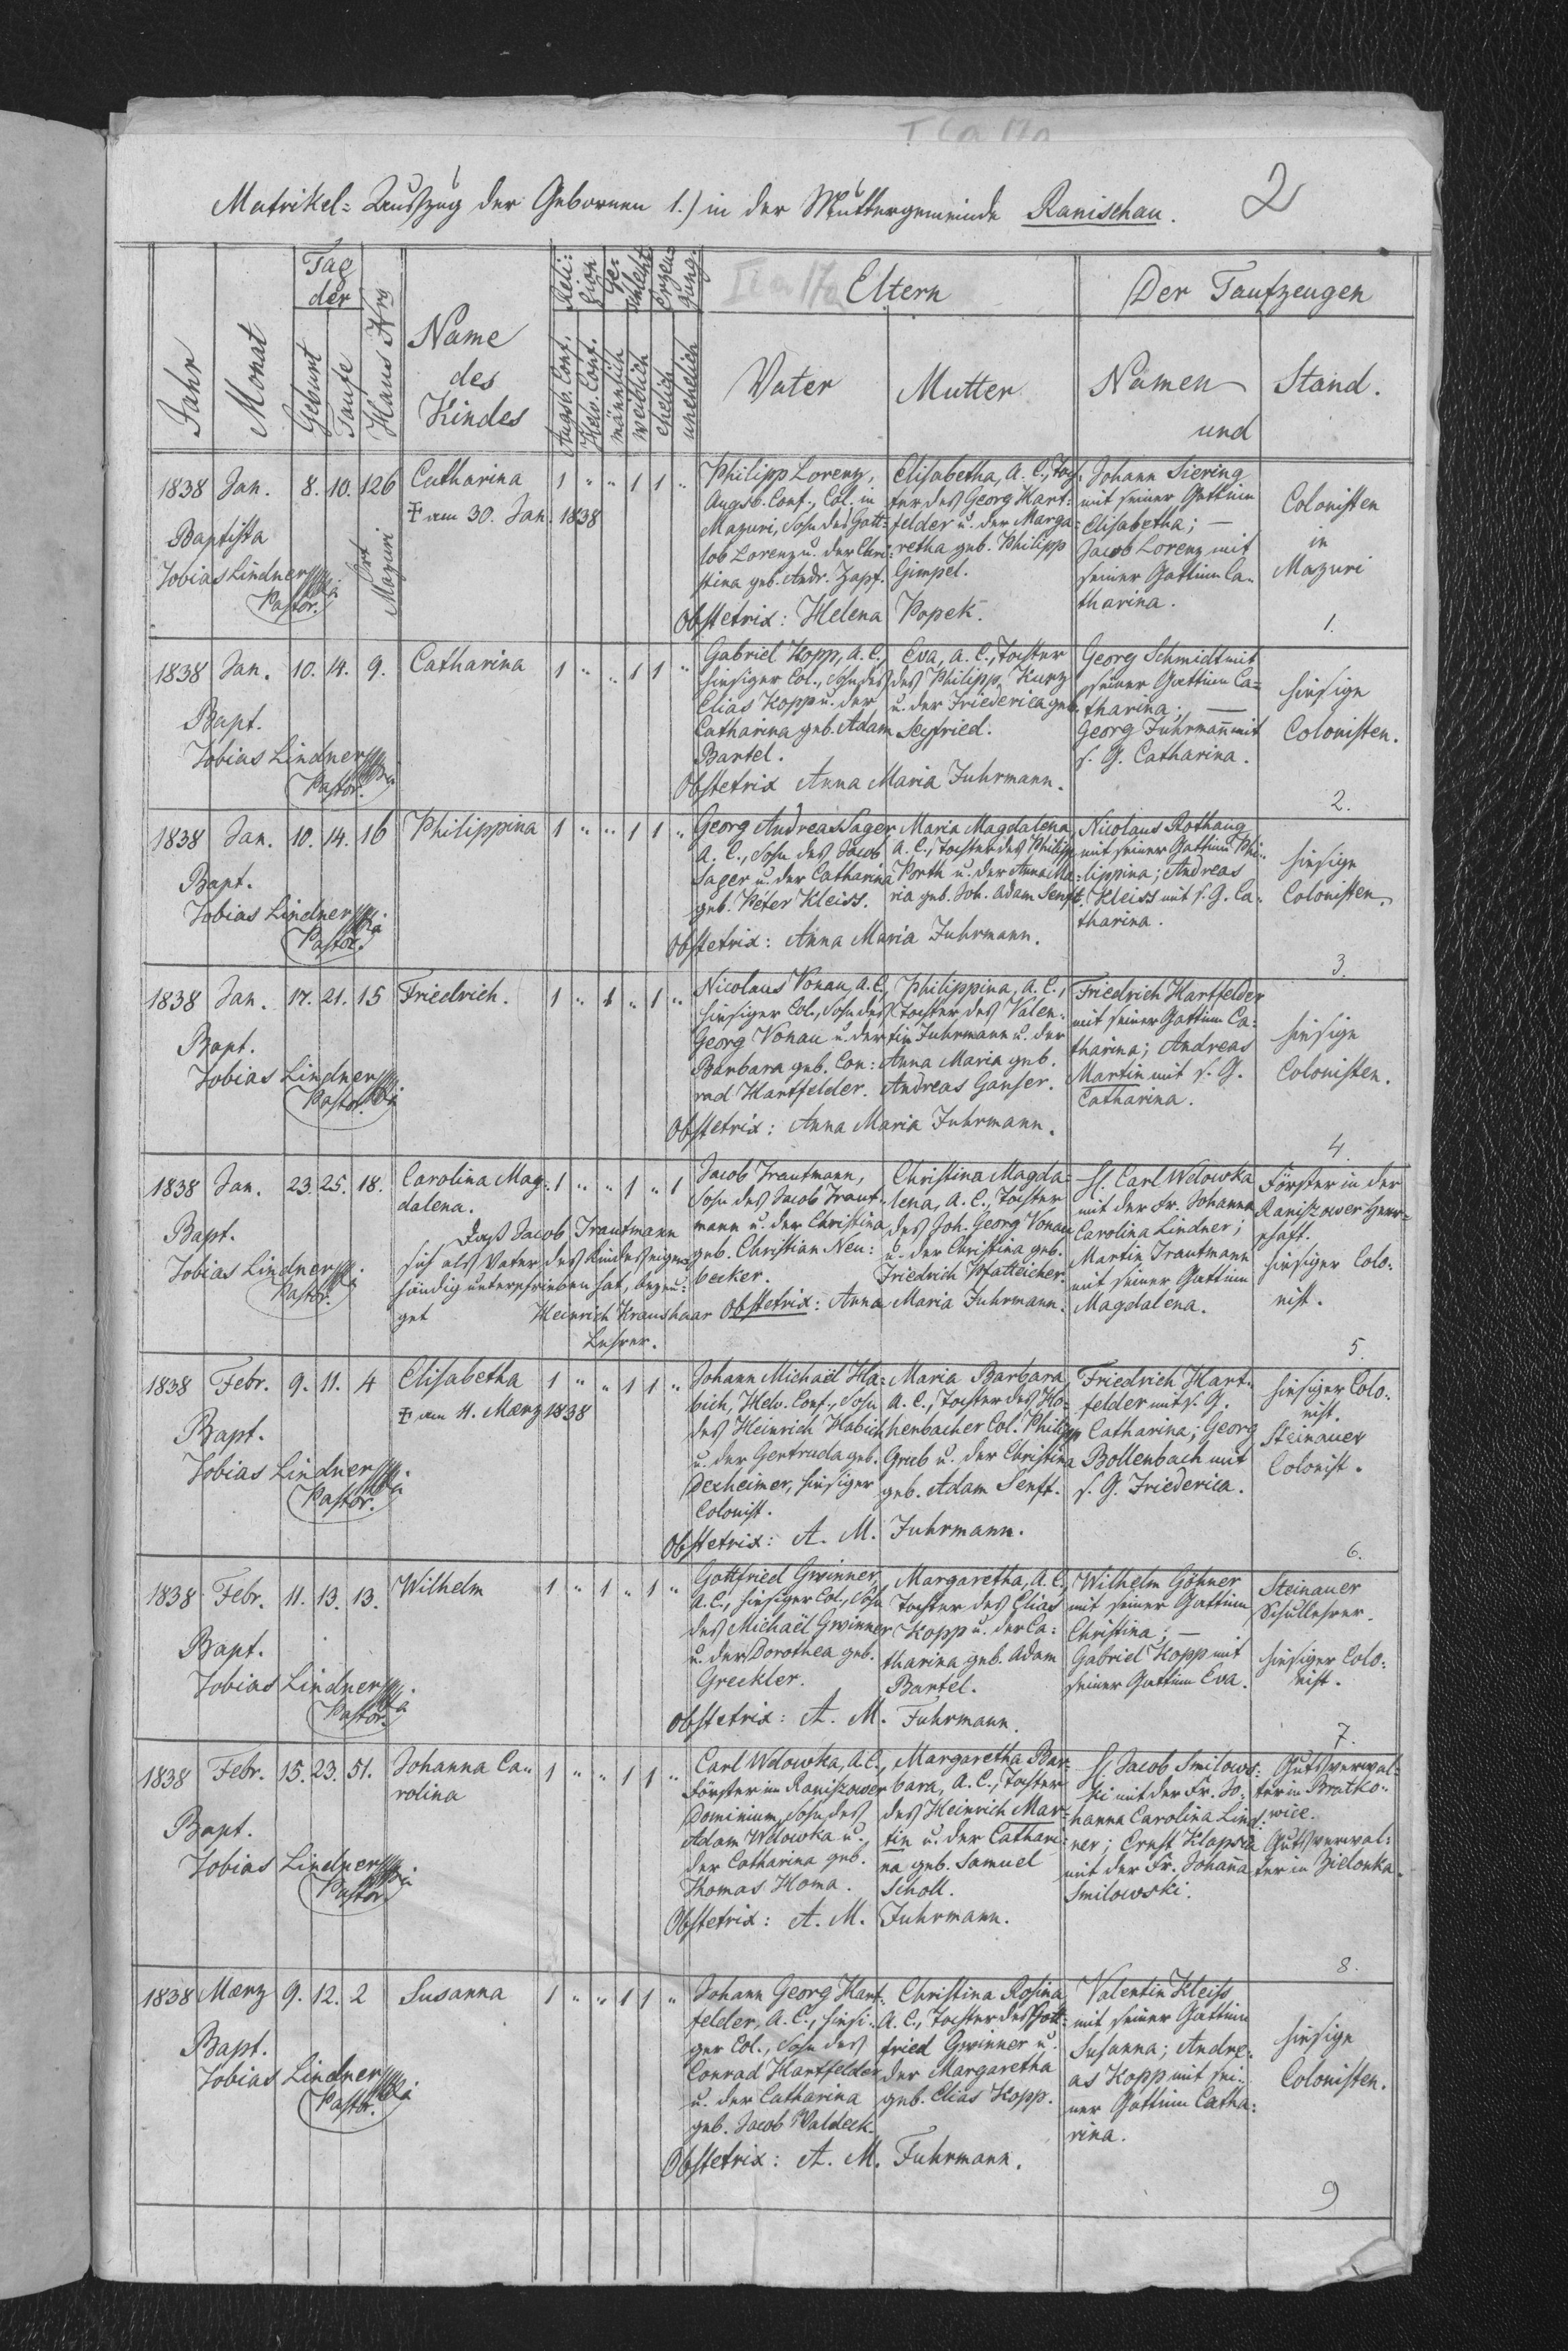 2
Matrikel= Auszug der Gebornen 1.) in der Muttergemeinde Ranischau.
Jahr
Monat
Tag
der
Geburt
Taufe
Haus Nro
Name
des
Kindes
Reli:
gion
Augsb. Conf.
Helv. Conf.
Ge:
schlecht
männlich
weiblich
Erzeu=
gung.
ehelich
unehelich
Eltern
Vater
Mutter
Der Taufzeugen
Namen
und
Stand.
1838 Jan. 8. 10. 126 Catharina 1 " " 1 1 "
✝ am 30. Jan. 1838
Baptista
Tobias Lindner
Pastor.
Ort
Mazuri
Philipp Lorenz,
Augsb. Conf., Col. in
Mazuri, Sohn des Gott=
lob Lorenz u. der Chri=
stina geb. Andr. Zapf.
Elisabetha, A. C., Toch=
ter des Georg Hart=
felder u. der Marga=
retha geb. Philipp
Gimpel.
Obstetrix: Helena Popek.
Johann Siering
mit seiner Gattinn
Elisabetha; —
Jacob Lorenz mit
seiner Gattinn Ca=
tharina.
Colonisten
in
Mazuri
1.
1838 Jan. 10. 14. 9. Catharina 1 " " 1 1 "
Bapt.
Tobias Lindner
Pastor.
Gabriel Kopp, A. C.,
hiesiger Col., Sohn des
Elias Kopp u. der
Catharina geb. Adam
Bartel.
Eva, A. C., Tochter
des Philipp Kurz
u. der Friederica geb.
Segfried.
Obstetrix Anna Maria Fuhrmann.
Georg Schmidt mit
seiner Gattinn Ca=
tharina; —
Georg Fuhrmann mit
s. G. Catharina.
hiesige
Colonisten.
2.
1838 Jan. 10. 14. 16 Philippina 1 " " 1 1 "
Bapt.
Tobias Lindner
Pastor.
Georg Andreas Sager,
A. C., Sohn des Jacob
Sager u. der Catharina
geb. Peter Kleiss.
Maria Magdalena,
A. C., Tochter des Philipp
Porth u. der Anna Ma=
ria geb. Joh. Adam Senft.
Obstetrix: Anna Maria Fuhrmann.
Nicolaus Rothaug
mit seiner Gattinn Phi=
lippina; Andreas
Kleiss mit s. G. Ca=
tharina.
hiesige
Colonisten.
3.
1838 Jan. 17. 21. 15 Friedrich. 1 " 1 " 1 "
Bapt.
Tobias Lindner
Pastor.
Nicolaus Vonau, A. C.,
hiesiger Col., Sohn des
Georg Vonau u. der
Barbara geb. Con=
rad Hartfelder.
Philippina, A. C.,
Tochter des Valen=
tin Fuhrmann u. der
Anna Maria geb.
Andreas Ganser.
Obstetrix: Anna Maria Fuhrmann.
Friedrich Hartfelder
mit seiner Gattinn Ca=
tharina; Andreas
Martin mit s. G.
Catharina.
hiesige
Colonisten.
4.
1838 Jan. 23. 25. 18. Carolina Mag= 1 " " 1 " 1
dalena.
Bapt.
Tobias Lindner
Pastor.
Daß Jacob Trautmann
sich als Vater des Kindes eigen=
händig unterschrieben hat, bezeu=
get Heinrich Kraushaar
Lehrer.
Jacob Trautmann,
Sohn des Jacob Traut=
mann u. der Christina
geb. Christian Neu=
becker.
Christina Magda=
lena, A. C., Tochter
des Joh. Georg Vonau
u. der Christina geb.
Friedrich Pfatteicher.
Obstetrix: Anna Maria Fuhrmann.
H. Carl Wdowka
mit der Fr. Johanna
Carolina Lindner;
Martin Trautmann
mit seiner Gattinn
Magdalena.
Förster in der
Raniszower Herr=
schaft.
hiesiger Colo=
nist.
5.
1838 Febr. 9. 11. 4 Elisabetha 1 " " 1 1 "
✝ am 4. Maerz 1838
Bapt.
Tobias Lindner
Pastor.
Johann Michaël Ha=
bich, Helv. Conf., Sohn
des Heinrich Habich
u. der Gertruda geb.
Dexheimer, hiesiger
Colonist.
Maria Barbara
A. C., Tochter des Ho=
henbacher Col. Philipp
Grub u. der Christina
geb. Adam Senft.
Obstetrix: A. M. Fuhrmann.
Friedrich Hart=
felder mit s. G.
Catharina; Georg
Bollenbach mit
s. G. Friederica.
hiesiger Colo=
nist.
Steinauer
Colonist.
6.
1838 Febr. 11. 13. 13. Wilhelm 1 " 1 " 1 "
Bapt.
Tobias Lindner
Pastor.
Gottfried Gwinner,
A. C., hiesiger Col., Sohn
des Michaël Gwinner
u. der Dorothea geb.
Greckler.
Margaretha, A. C.,
Tochter des Elias
Kopp u. der Ca=
tharina geb. Adam
Bartel.
Obstetrix: A. M. Fuhrmann.
Wilhelm Göhner
mit seiner Gattinn
Christina; —
Gabriel Kopp mit
seiner Gattinn Eva.
Steinauer
Schullehrer.
hiesiger Colo=
nist.
7.
1838 Febr. 15. 23. 51. Johanna Ca= 1 " " 1 1 "
rolina
Bapt.
Tobias Lindner
Pastor
Carl Wdowka, A. C.,
Förster im Raniszower
Dominium, Sohn des
Adam Wdowka u.
der Catharina geb.
Thomas Homa.
Margaretha Bar=
bara, A. C., Tochter
des Heinrich Mar=
tin u. der Cathari=
na geb. Samuel
Scholl.
Obstetrix: A. M. Fuhrmann.
H. Jacob Smilows=
ki mit der Fr. Jo=
hanna Carolina Lind=
ner; Ernst Klapsia
mit der Fr. Johanna
Smilowski.
Gutsverwal=
ter in Bratko=
wice.
Gutsverwal=
ter in Zielonka.
8.
1838 Maerz 9. 12. 2 Susanna 1 " " 1 1 "
Bapt.
Tobias Lindner
Pastor.
Johann Georg Hart=
felder, A. C., hiesi=
ger Col., Sohn des
Conrad Hartfelder
u. der Catharina
geb. Jacob Waldeck.
Christina Rosina
A. C., Tochter des Gott=
fried Gwinner u.
der Margaretha
geb. Elias Kopp.
Obstetrix: A. M. Fuhrmann.
Valentin Kleiss
mit seiner Gattinn
Susanna; Andre=
as Kopp mit sei=
ner Gattinn Catha=
rina.
hiesige
Colonisten.
9